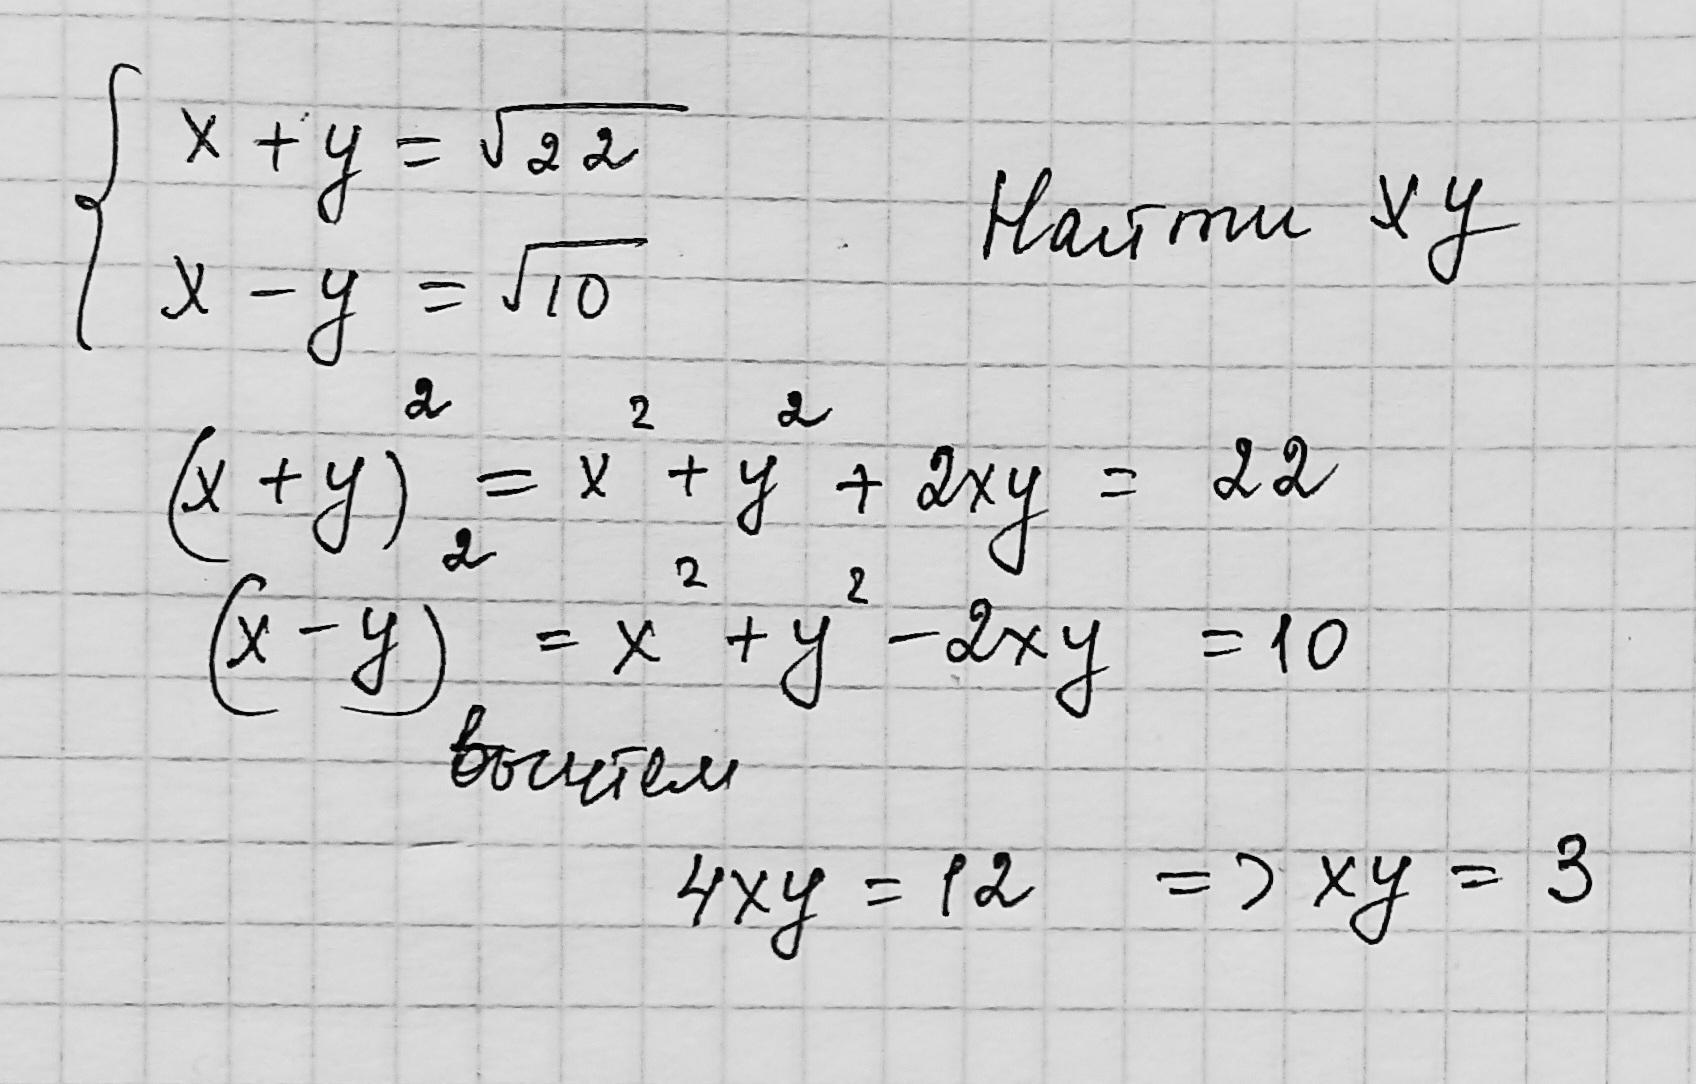 { x + y = √22
x - y = √10
Найти xy
(x + y)² = x² + y² + 2xy = 22
(x - y)² = x² + y² - 2xy = 10
вычтем
4xy = 12 => xy = 3